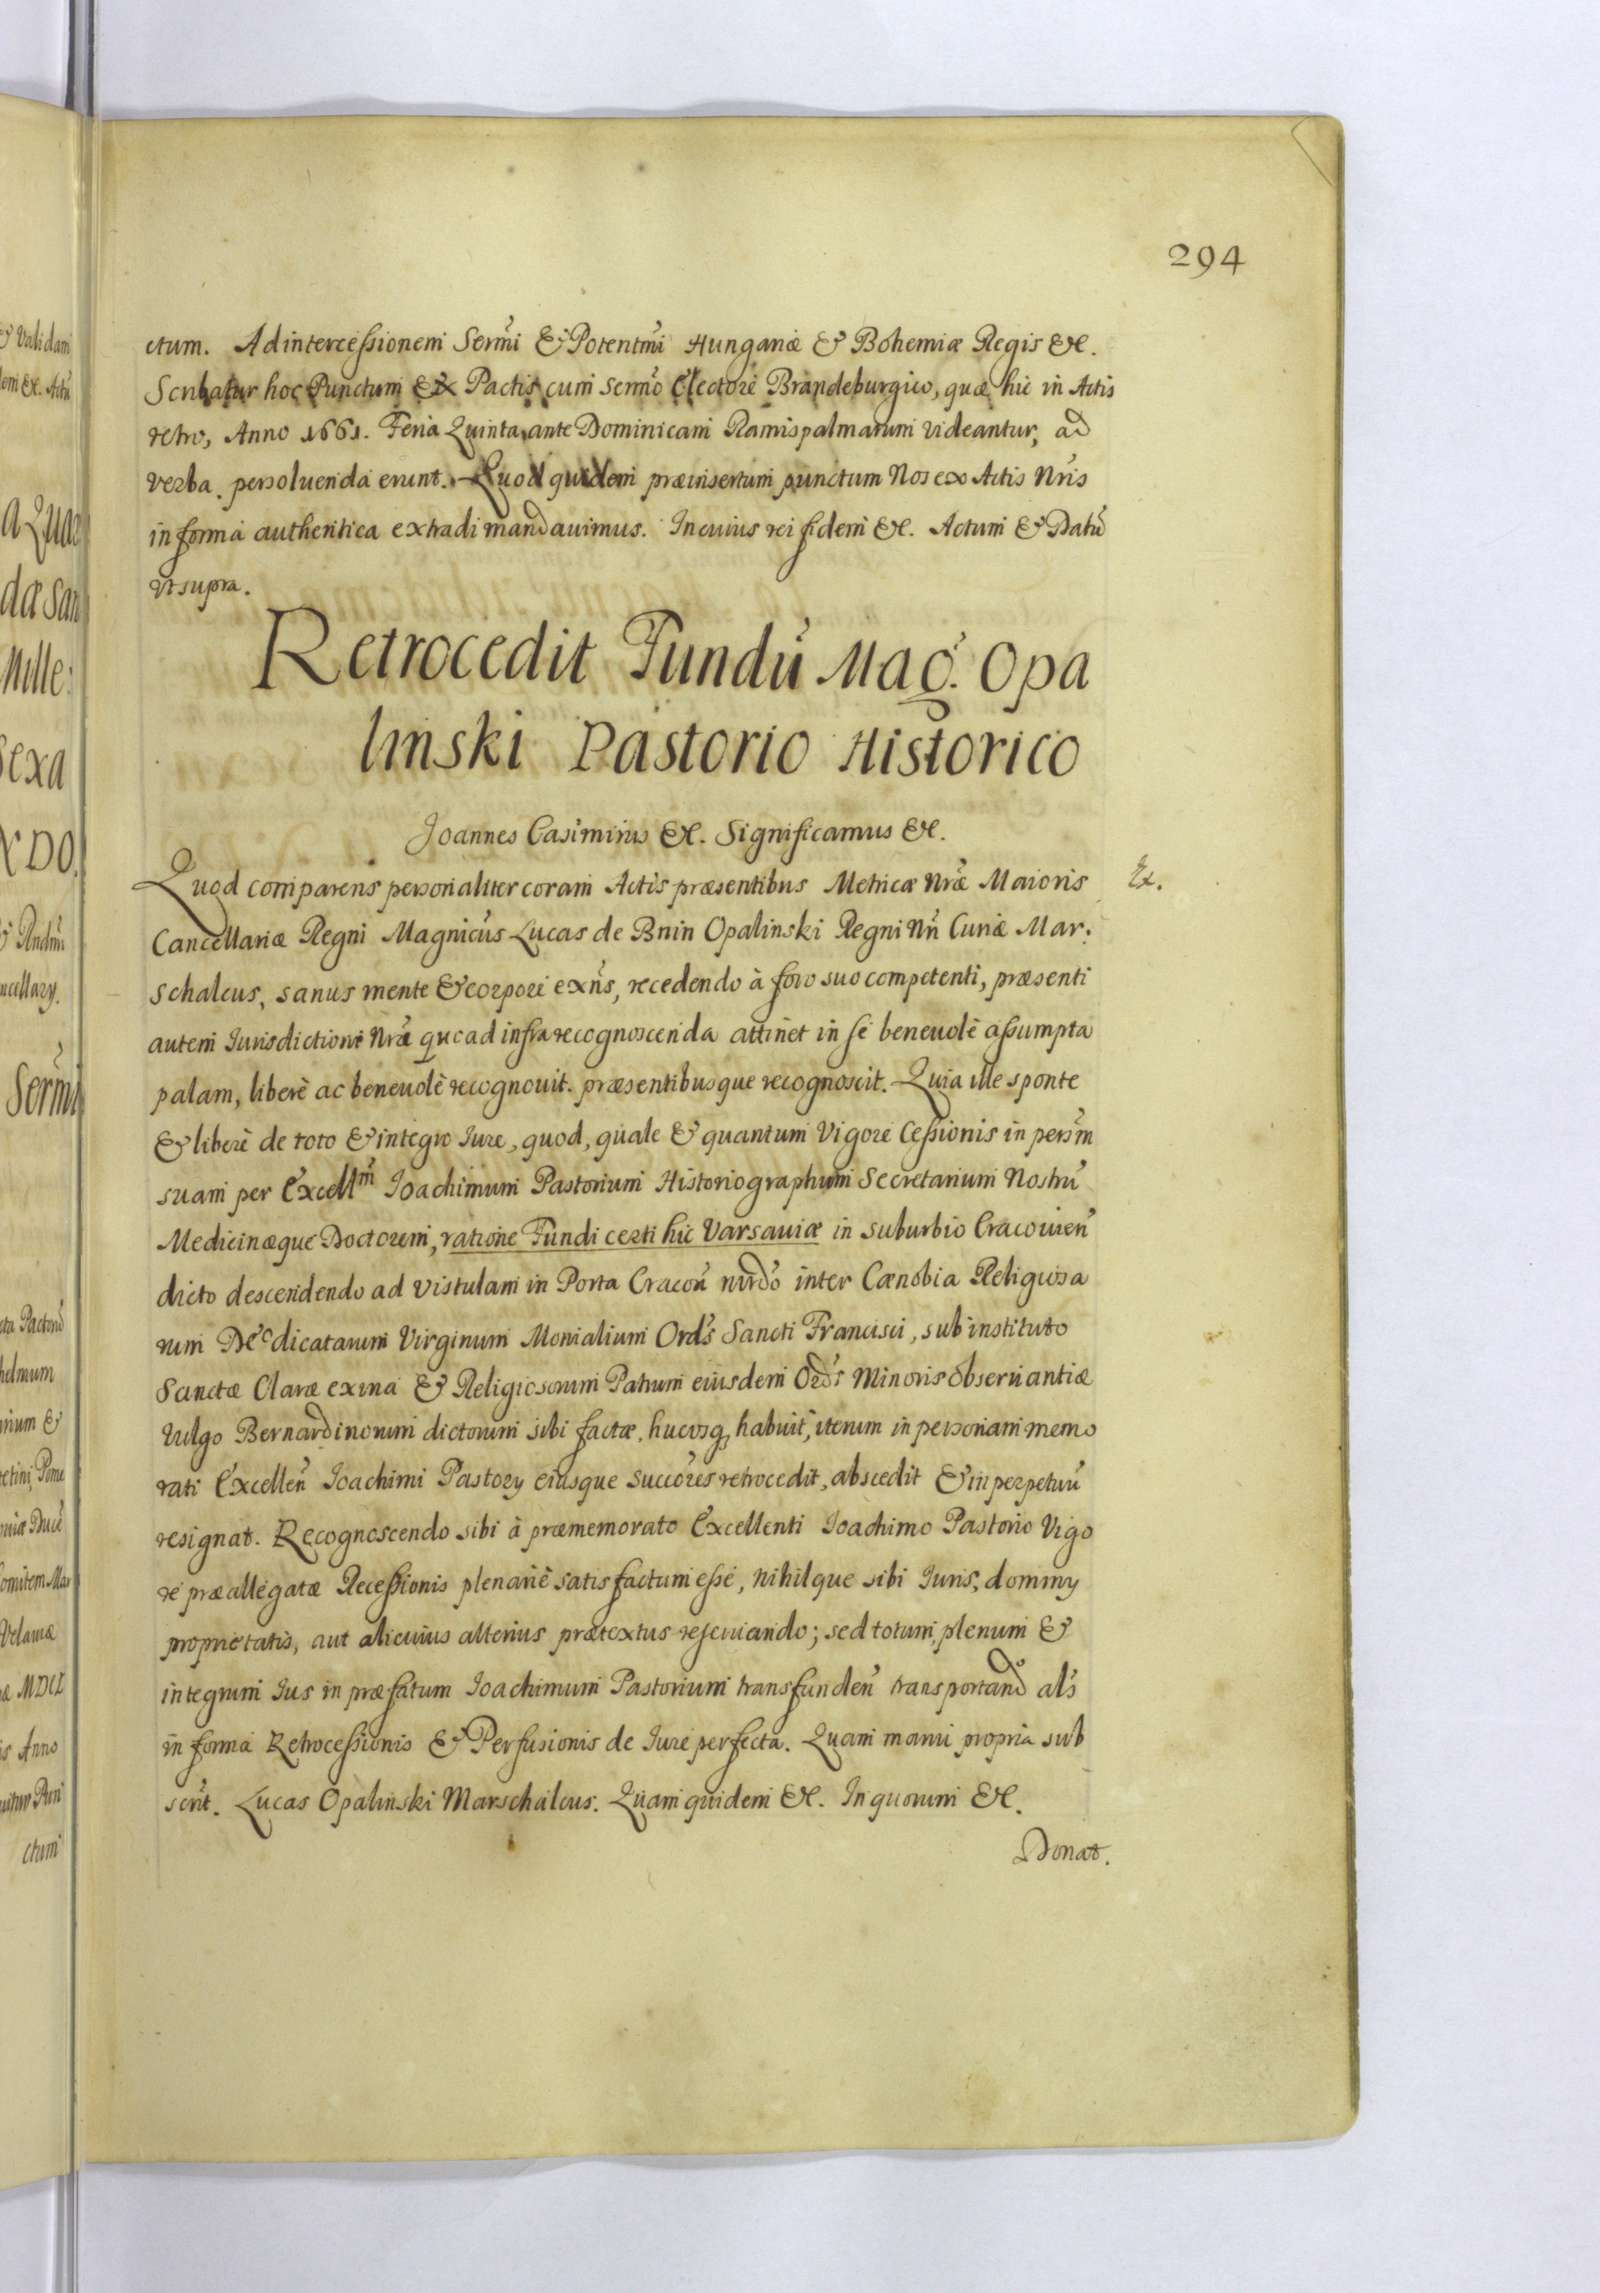 294
ctum. Ad intercessionem Sermi & Potentmi Hungariæ & Bohemiæ Regis &c.
Scribatur hoc Punctum Ex Pactis cum Sermo Electore Brandeburgico, quæ hic in Actis
retro, Anno 1661. Feria Quinta ante Dominicam Ramispalmarum videantur, ad
verba. persoluenda erunt. Quod quidem præinsertum punctum Nos ex Actis Nris
in forma authentica extradi mandauimus. In cuius rei fidem &c. Actum & Datũ
vt supra.
Retrocedit Fundũ Mag. Opa
linski Pastorio Historico
Joannes Casimirus &c. Significamus &c.
Quod comparens personaliter coram Actis præsentibus Metricæ Nræ Maioris
Ex.
Cancellariæ Regni Magnicus Lucas de Bnin Opalinski Regni Nri Curiæ Mar.
schalcus, sanus mente & corpore exñs, recedendo à foro suo competenti, præsenti
autem Jurisdictioni Nræ quoad infra recognoscenda attinet in se beneuolè assumpta
palam, liberè ac beneuolè recognouit. præsentibusque recognoscit. Quia ille sponte
& liberè de toto & integro Jure, quod, quale & quantum Vigore Cessionis in persm
suam per Excellm Joachimum Pastorium Historiographum Secretarium Nostrũ
Medicinæque Doctorem, ratione Fundi certi hic Varsauiæ in suburbio Cracouien
dicto descendendo ad Vistulam in Porta Cracoũ nurdo inter Cænobia Religiosa
rum Deodicatarum Virginum Monialium Ords Sancti Francisci, sub instituto
Sanctæ Claræ exina & Religiosorum Patrum eiusdem Ords Minoris obseruantiæ
vulgo Bernardinorum dictorum sibi factæ, hucusq, habuit, iterum in personam memo
rati Excellen Joachimi Pastory eiusque succores retrocedit, abscedit & in perpetuũ
resignat. Recognoscendo sibi à præmemorato Excellenti Joachimo Pastorio Vigo
re præallegatæ Recessionis plenariè satisfactum esse, nihilque sibi Juris, dominy
proprietatis, aut alicuius alterius prætextus reseruando; sed totum, plenum &
integrum Jus in præfatum Joachimum Pastorium transfunden transportand als
in forma Retrocessionis & Perfusionis de Jure perfecta. Quam manu propria sub
scrit. Lucas Opalinski Marschalcus. Quam quidem &c. In quorum &c.
Donat.